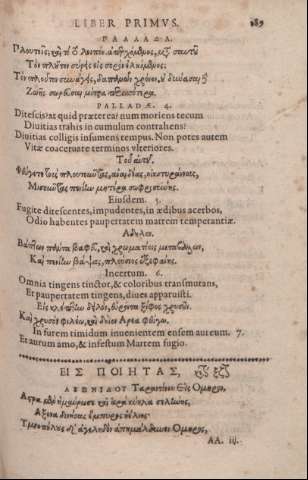 LIBER PRIMVS. 189
ΠΑΛΛΑΔΑ.
Πλουτεῖς, καὶ τί τὸ λοιπὸν
Τὸν πλοῦτον σύρεις εἰς σορὸν ἑλκόμενος;
Τὸν πλοῦτον συνάγεις, δαπανῶν χρόνον, οὐ δύνασαι δὲ
Ζωῆς σωρεῦσαι μέτρα περισσότερα.
PALLADÆ. 4.
Ditescis: at quid præterea? num moriens tecum
Diuitias trahis in cumulum contrahens?
Diuitias colligis insumens tempus. Non potes autem
Vitæ coaceruare terminos vlteriores.
Τοῦ αὐτοῦ.
Φεύγετε τοὺς πλουτοῦντας, ἀναιδέας, οἰκοτυράννους,
Μισοῦντας πενίην μητέρα σωφροσύνης.
Eiusdem. 5.
Fugite ditescentes, impudentes, in ædibus acerbos,
Odio habentes paupertatem matrem temperantiæ.
Ἄδηλον.
Βάπτων πάντα βαφεῦ, καὶ χρώμασι μεταβάλλων,
Καὶ πενίην βάψας, πλούσιος ἐξεφάνης.
Incertum. 6.
Omnia tingens tinctor, & coloribus transmutans,
Et paupertatem tingens, diues apparuisti.
Εἰς κλέπτην δειλὸν, εὑρόντα ξίφος χρυσοῦν.
Καὶ χρυσὸν φιλέω, καὶ δήιον Ἄρεα φεύγω.
In furem timidum inuenientem ensem aureum. 7.
Et aurum amo, & infestum Martem fugio.
ΕΙΣ ΠΟΙΗΤΑΣ,
ΛΕΩΝΙΔΟΥ Ταραντίνου Εἰς Ὅμηρον.
Ἄστρα μὲν ἠμαύρωσε καὶ ἱερὰ κύκλα σελήνης,
Ἄξονα δινήσας ἔμπυρος ἠέλιος·
Ὑμνοπόλους δ' ἀγεληδὸν ἀπημάλδυνεν Ὅμηρος,
AA. iij.